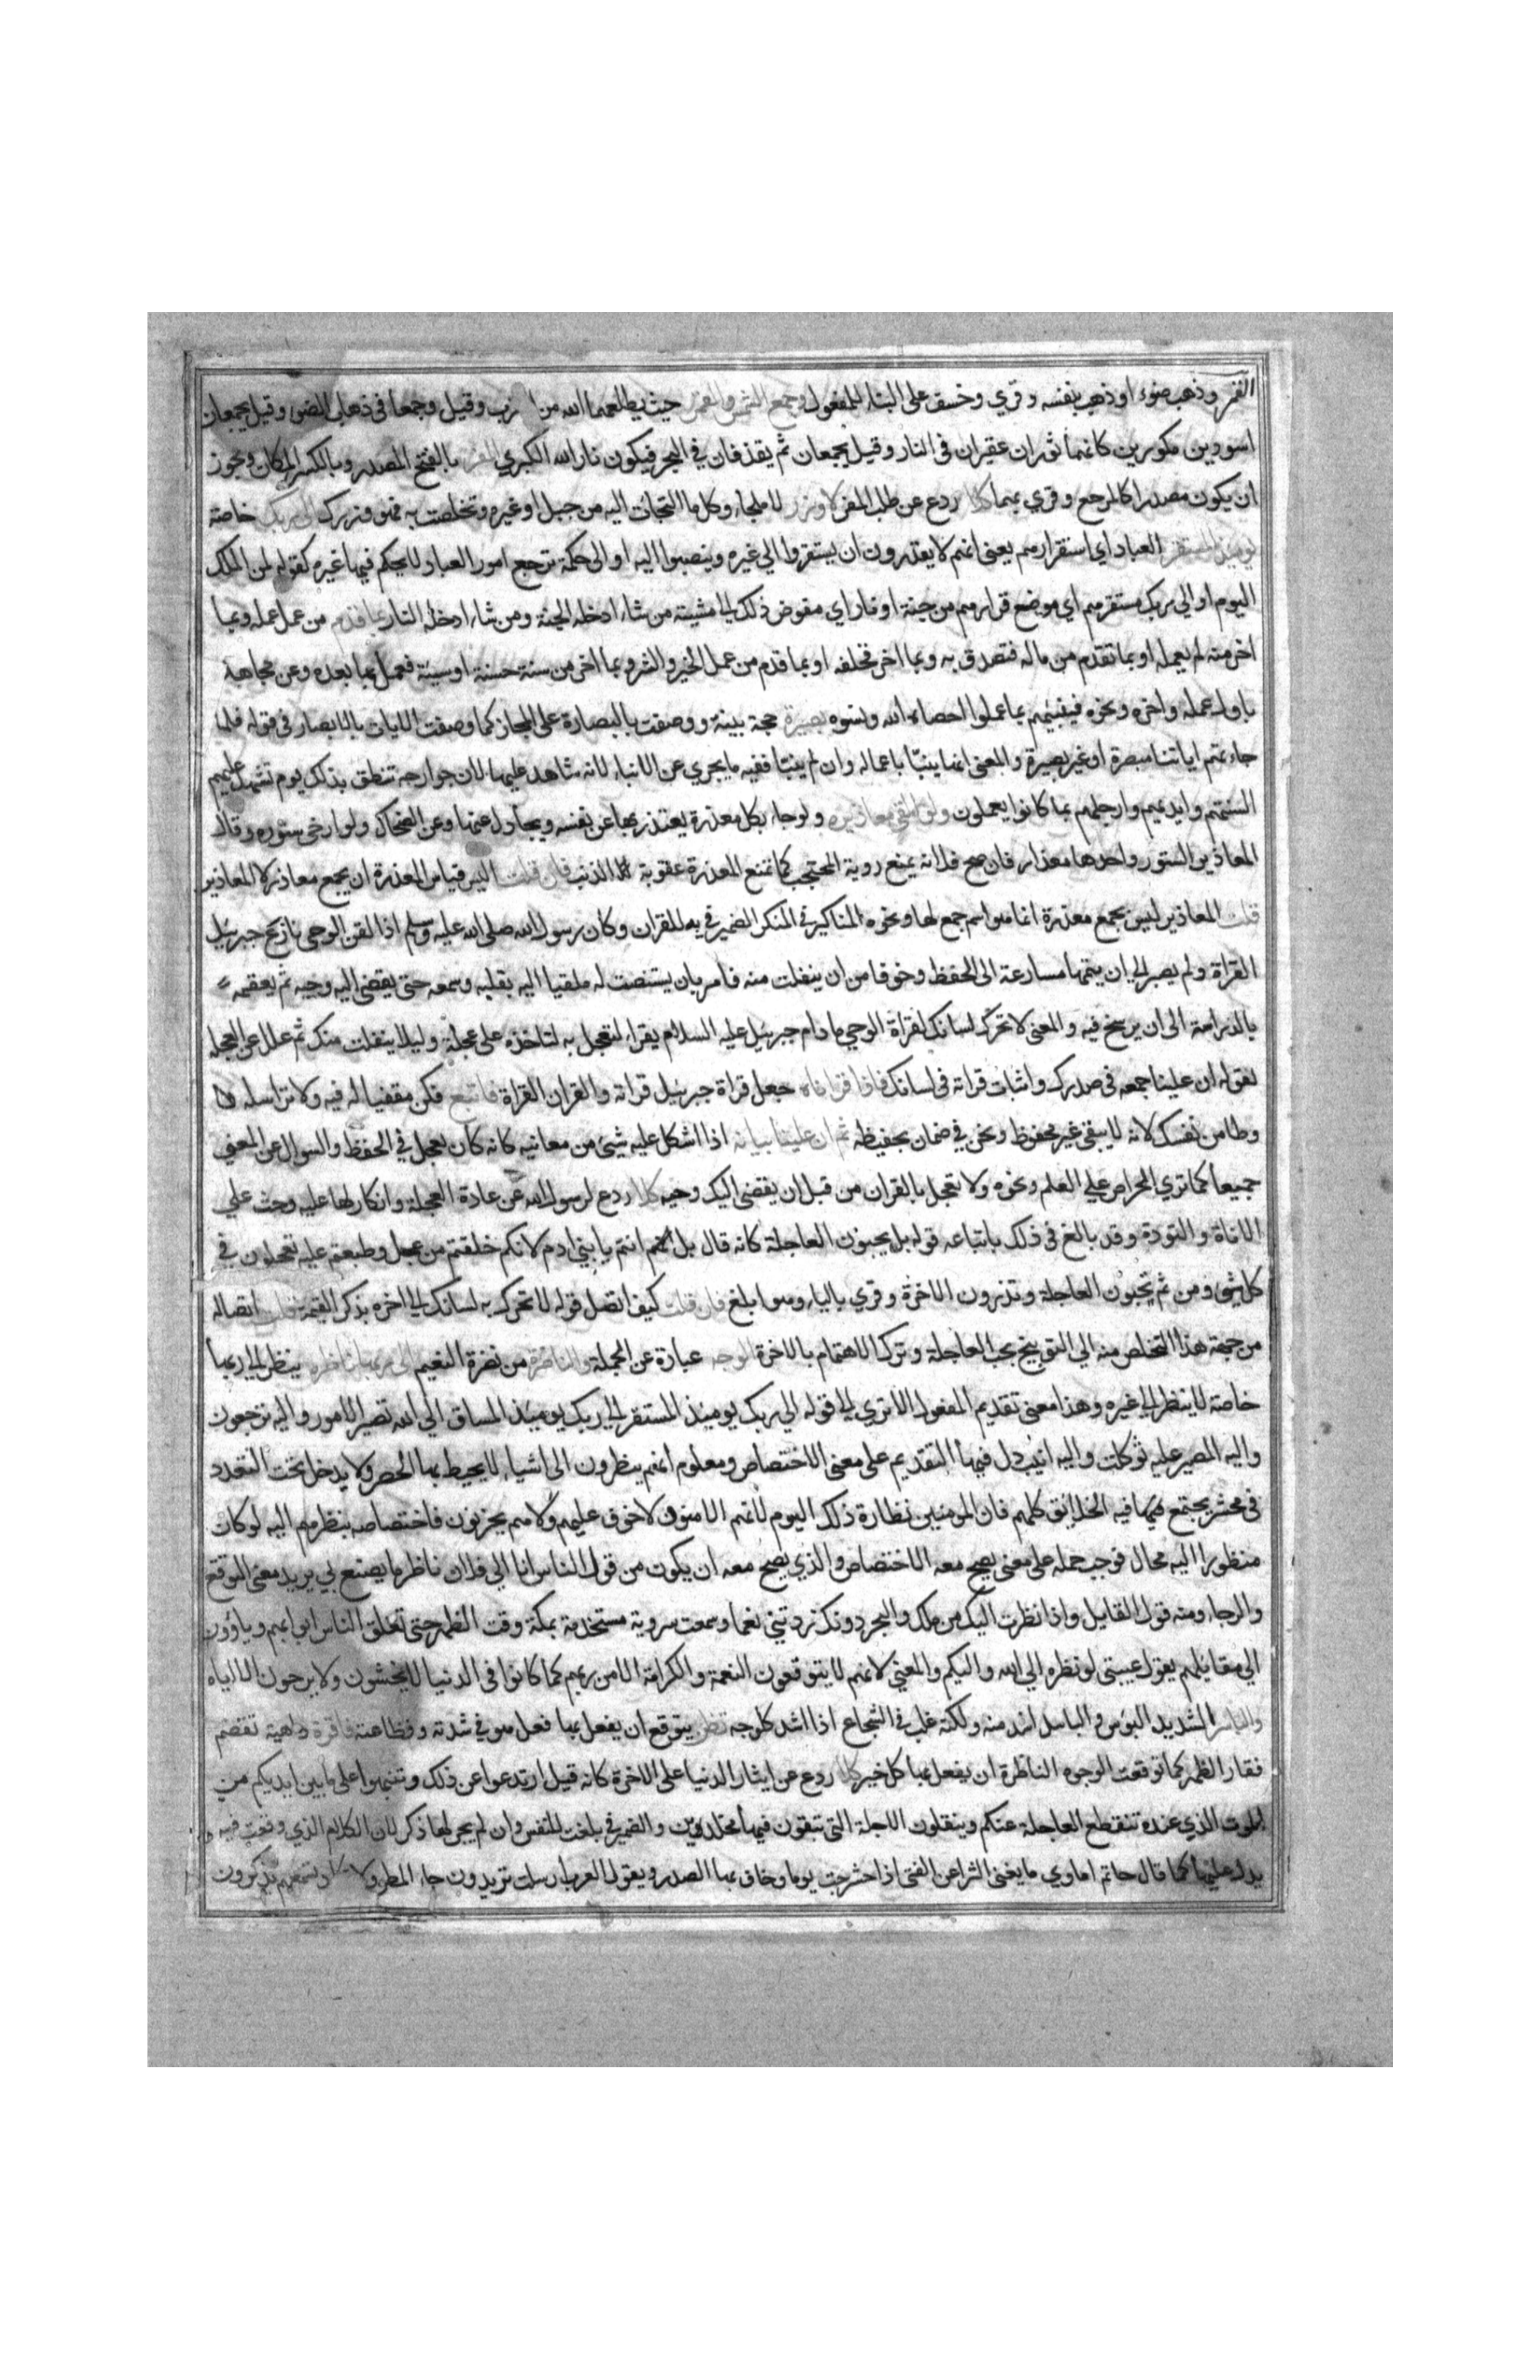 القمر وذهب ضوءه او ذهب بنفسه وقري وخسف على البناء للمفعول وجمع الشمس والقمر حيث يطلعهما الله من المغرب وقيل وجمعا في ذهاب الضوء وقيل يجمعان
اسودين مكورين كانهما ثوران عقيران في النار وقيل يجمعان ثم يقذفان في البحر فيكون نار الله الكبري المفر بالفتح المصدر وبالكسر المكان ويجوز
ان يكون مصدرا كالمرجع وقري بهما كلا ردع عن طلب المفر لا وزر لا ملجاء وكل ما التجات اليه من جبل او غيره وتخلصت به فهو وزرك الى ربك خاصة
يومئذ المستقر العباد اي استقرارهم يعني انهم لا يقدرون ان يستقروا الي غيره وينصبوا اليه او الى حكمه ترجع امور العباد لا يحكم فيها غيره كقوله لمن الملك
اليوم او الي ربك مستقرهم اي موضع قرارهم من جنة او نار اي مفوض ذلك الي مشيته من شاء ادخله الجنة ومن شاء ادخله النار بما قدم من عمل عمله وبما
اخر منه لم يعمله او بما تقدم من ماله فتصدق به وبما اخر فخلفه او بما قدم من عمل الخير والشر وبما اخر من سنة حسنة او سيئة فعمل بها بعده وعن مجاهد
باول عمله واخره ونحوه فينبئهم بما عملوا احصاه الله ونسوه بصيرة حجة بينة ووصفت بالبصارة على المجاز كما وصفت الايات بالابصار في قوله فلما
جاءتهم اياتنا مبصرة او عين بصيرة والمعنى انه ينبّأ باعماله وان لم ينبّا ففيه ما يجري عن الانباء لانه شاهد عليها لان جوارحه تنطق بذلك يوم تشهد عليهم
السنتهم وايديهم وارجلهم بما كانوا يعملون ولو القى معاذيره ولو جاء بكل معذرة يعتذر بها عن نفسه ويجاول عنها وعن الضحاك ولو ارخى ستوره وقال
المعاذير الستور واحدها معذار فان صح فلانه يمنع روية المحتجب كما تمنع المعذرة عقوبة الذنب فان قلت اليس قياس المعذرة ان يجمع معاذر لا المعاذير
قلت المعاذير ليس بجمع معذرة انما هو اسم جمع لها ونحوه المناكير في المنكر الضمير في به للقران وكان رسول الله صلى الله عليه وسلم اذا لقن الوحي نازع جبرئيل
القراة ولم يصبر الي ان يتمها مسارعة الى الحفظ وخوفا من ان ينفلت منه فامر بان يستنصت له ملقيا اليه بقلبه وسمعه حتى يقضى اليه وحيه ثم يعقبه
بالدراسة الى ان يرسخ فيه والمعنى لا تحرك لسانك لقراة الوحي ما دام جبرئيل عليه السلام يقراء لتعجل به لتاخذه على عجلة وليلا ينفلت منك ثم علل عن العجلة
لقوله ان علينا جمعه في صدرك واثبات قراته في لسانك فاذا قراناه جعل قراة جبرئيل قراته والقران القراة فاتبع فكن مقفيا له فيه ولا تراسله
وطامن نفسك لانه لا يبقى غير محفوظ ونحن في ضمان بحفيظه ثم ان علينا بيانه اذا اشكل عليه شيئ من معانيه كانه كان يعجل في الحفظ والسوال عن المعني
جميعا كما تري الحراص علي العلم ونحوه ولا تعجل بالقران من قبل ان يقضى اليك وحيه كلا ردع لرسول الله عن عادة العجلة وانكار لها عليه وحث علي
الاناة والتودة وقد بالغ في ذلك باتباعه قوله بل يحبون العاجلة كانه قال بل انتم يا بني ادم لانكم خلقتم من عجل وطبعتم عليه تعجلون في
كل شيئ ومن ثم تحبون العاجلة وتذرون الاخرة وقري بالياء وهو ابلغ فان قلت كيف اتصل قوله لا تحرك به لسانك الي اخره بذكر القيمة قلت اتصاله
من جهة هذا التخلص منه الي التوبيخ بحب العاجلة وترك الاهتمام بالاخرة الوجه عبارة عن الجملة والناظرة من نضرة النعيم الى ربها ناظره ينظر الي ربها
خاصة لا ينظر الي غيره وهذا معنى تقديم المفعول الا تري الي قوله الي ربك يومئذ المستقر الي ربك يومئذ المساق الي الله تصير الامور واليه ترجعون
واليه المصير عليه توكلت واليه انيب دل فيها التقديم على معنى الاختصاص ومعلوم انهم ينظرون الى اشياء لا يحيط بها الحصر ولا يدخل تحت التعدد
في محشر يجتمع فيه الخلائق كلهم فان المومنين نظارة ذلك اليوم لانهم الامنون لا خوف عليهم ولا هم يحزنون فاختصاصه بنظرهم اليه لو كان
منظورا اليه محال فوجب حمله على معنى يصح معه الاختصاص والذي يصح معه ان يكون من قول الناس انا الي فلان ناظر ما يصنع بي يريد معنى التوقع
والرجاء ومنه قول القايل واذا نظرت اليك من ملك والبحر دونك زدتني نعما وسمعت سروية مستجدية بمكة وقت الظهر حتى تغلق الناس ابوابهم وياوون
الي مقايلهم يقول عيبتي نويظره الي الله واليكم والمعني لانهم لا يتوقعون النعمة والكرامة الا من ربهم كما كانوا في الدنيا لا يخشون ولا يرجون الا اياه
والباسر الشديد البؤس والباسل اشد منه ولكنه غلب في الشجاع اذا اشتد كلوحه تظن يتوقع ان يفعل بها فعل هو في شدته وفظاعته فاقرة داهية تقضم
فقار الظهر كما توقعت الوجوه الناظرة ان يفعل بها كل خير كلا ردع عن ايثار الدنيا على الاخرة كانه قيل ارتدعوا عن ذلك وتنبهوا على ما بين ايديكم من
الموت الذي عنده تنقطع العاجلة عنكم وينقلون الاجلة التي تبقون فيها مخلدين والضمير في بلغت للنفس وان لم يجر لها ذكر لان الكلام الذي وقعت فيه
يدل عليها كما قال حاتم اماوي ما يغني الثرا عن الفتى اذا حشرجت يوما وضاق بها الصدر ويقول العرب ارسلت تريدون جاء المطر ولا تسمعهم يذكرون